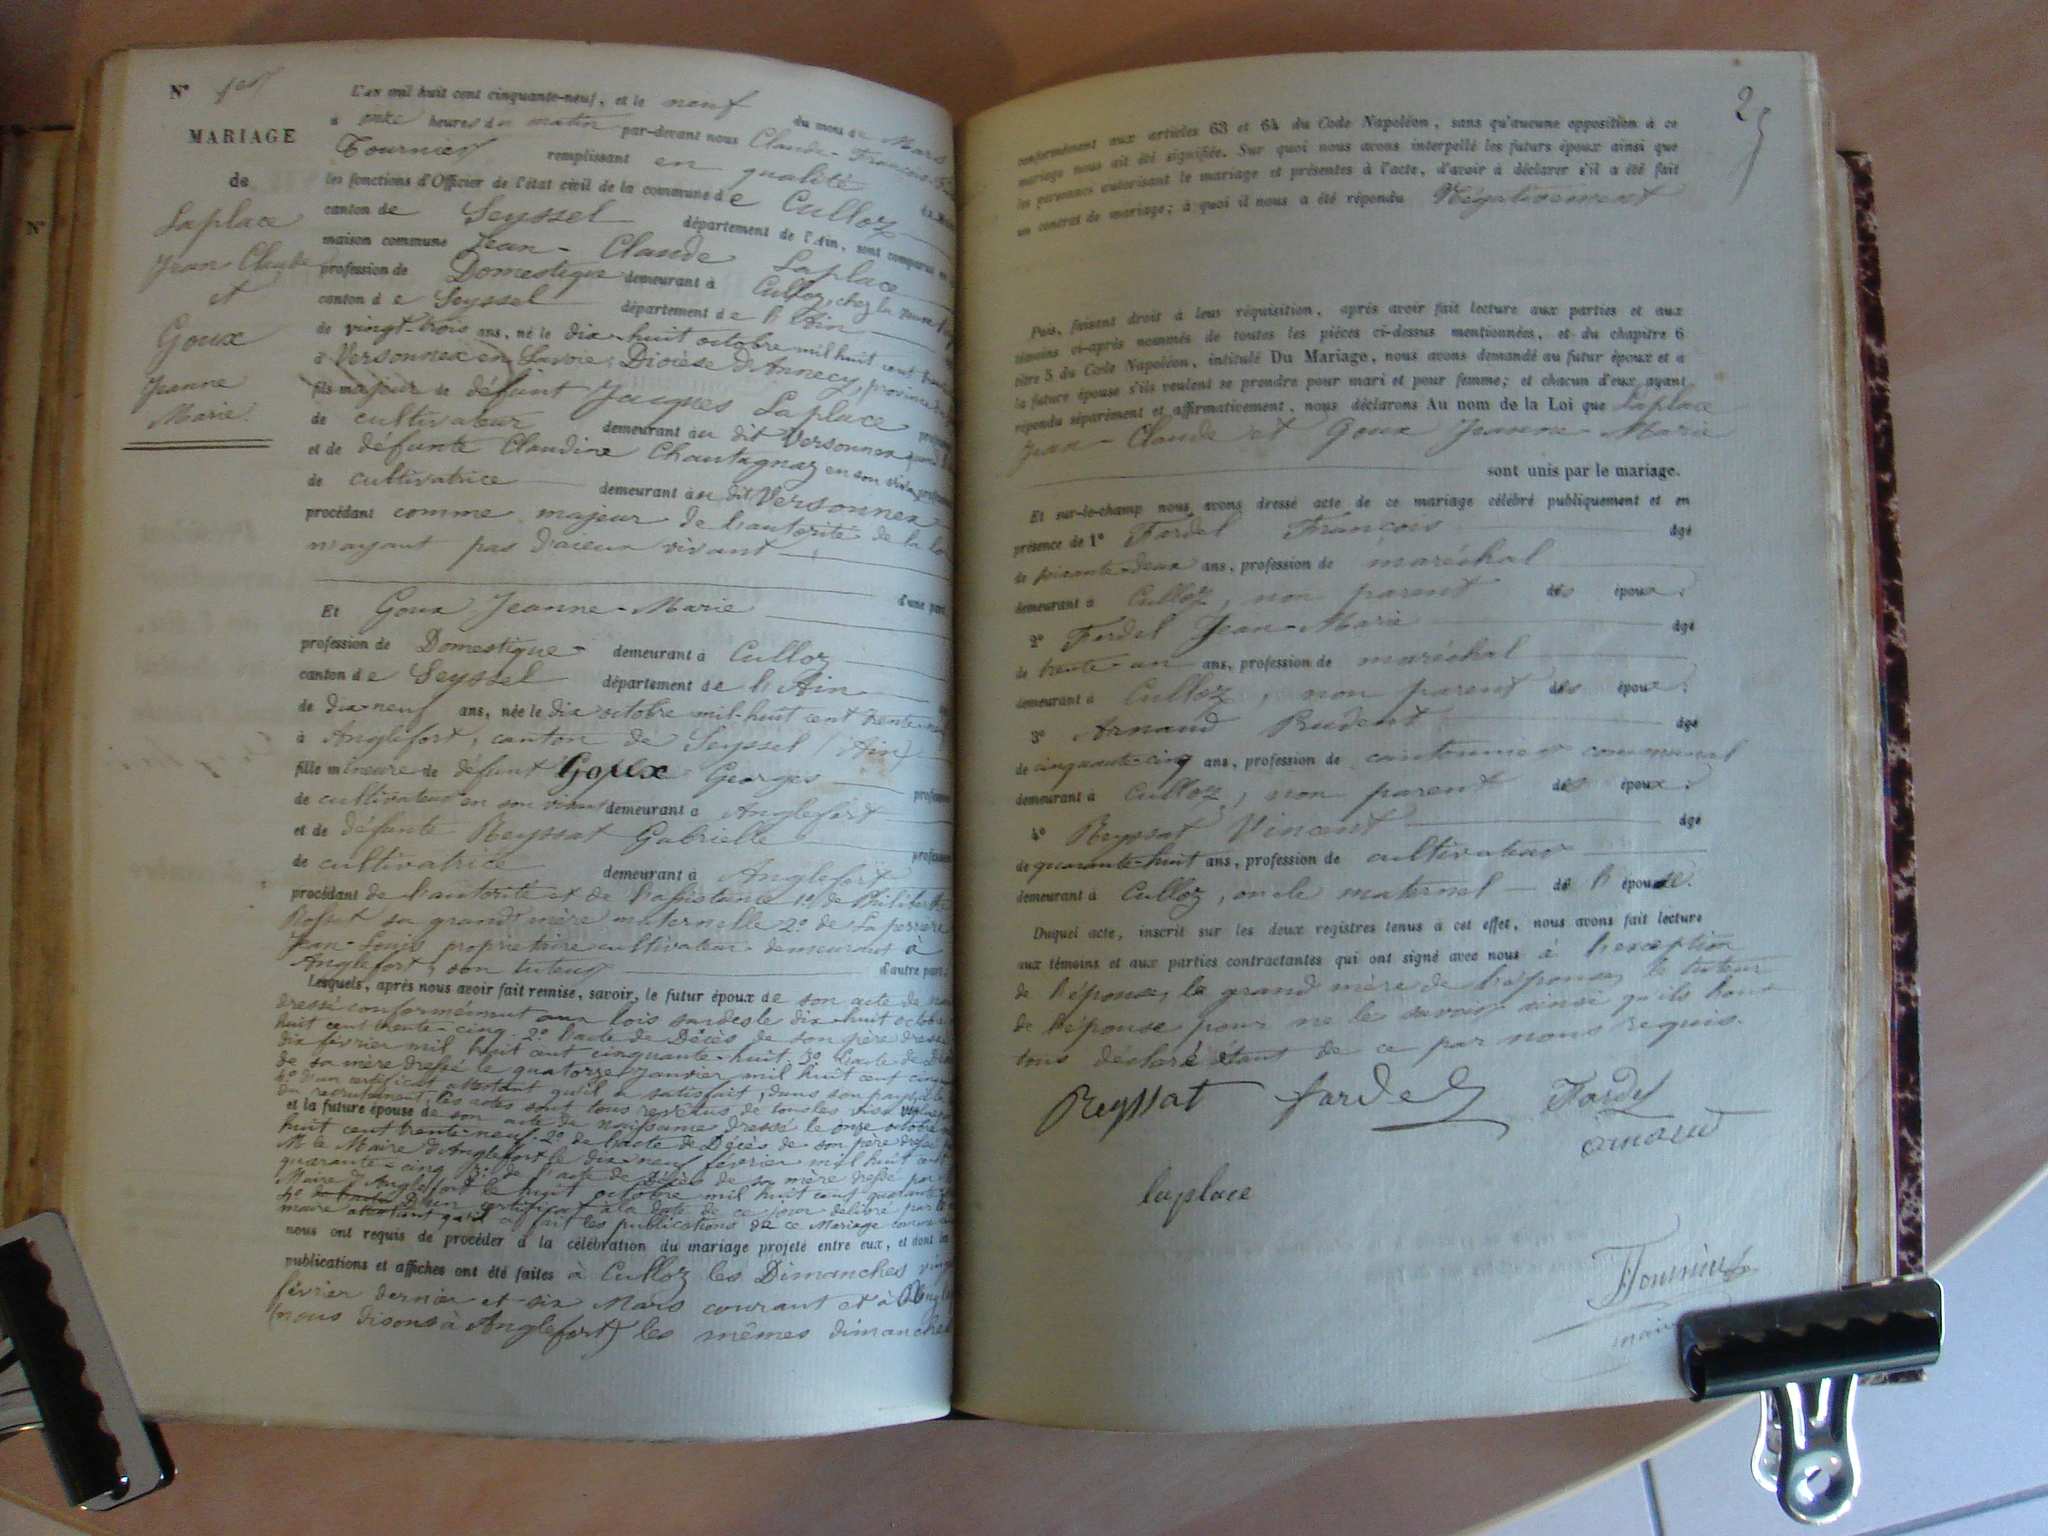 N°
N° 1er
MARIAGE
de
Laplace
Jean Claude
et
Goux
Jeanne
Marie.
L'an mil huit cent cinquante-neuf, et le neuf du mois de Mars
à onze heures du matin par-devant nous Claude-François
Fournier remplissant en qualité
les fonctions d'Officier de l'état civil de la commune de Culloz
canton de Seyssel département de l'Ain, sont comparus en
maison commune Jean-Claude Laplace
profession de Domestique demeurant à Culloz, chez la
canton de Seyssel département de l'Ain
de vingt-trois ans, né le dix-huit octobre mil huit cent
à Versonnex en Savoie, Diocèse d'Annecy, province
fils majeur de défunt Jacques Laplace
de cultivateur demeurant au dit Versonnex
et de défunte Claudine Chautagnaz en son vivant
de cultivatrice demeurant au dit Versonnex
procédant comme majeur de l'autorité de la loi
n'ayant pas d'aieux vivant
d'une part,
Et Goux Jeanne-Marie
profession de Domestique demeurant à Culloz
canton de Seyssel département de l'Ain
de dix-neuf ans, née le dix octobre mil-huit cent trente-neuf
à Anglefort, canton de Seyssel (Ain)
fille mineure de défunt Goux Georges
de cultivateur en son vivant demeurant à Anglefort
et de défunte Reyssat Gabrielle
de cultivatrice demeurant à Anglefort
procédant de l'autorité et de l'assistance 1° de Philiberte
sa grand'mère maternelle 2° de Laperrière
Jean-Louis propriétaire cultivateur demeurant à
Anglefort, son tuteur d'autre part.
Lesquels, après nous avoir fait remise, savoir, le futur époux de son acte de
dressé conformément aux lois sardes le dix-huit octobre
huit cent trente-cinq. 2° l'acte de Décès de son père dressé
dix février mil huit cent cinquante-huit. 3° l'acte de décès
de sa mère dressé le quatorze janvier mil huit cent
4° d'un certificat attestant qu'il a satisfait, dans son pays, à la
du recrutement, les actes sont tous revêtus de tous les visa
et la future épouse de son acte de naissance dressé le onze octobre
huit cent trente-neuf. 2° de l'acte de Décès de son père dressé
M. le Maire d'Anglefort le dix-neuf février mil huit cent
quarante-cinq 3° de l'acte de décès de sa mère dressé par
Maire d'Anglefort le huit octobre mil huit cent quarante
4° D'un certificat à la date de ce jour délivré par le
maire attestant qu'il a fait les publications de ce Mariage
nous ont requis de procéder à la célébration du mariage projeté entre eux, et dont les
publications et affiches ont été faites à Culloz les Dimanches
février dernier et six Mars courant et à
(nous disons à Anglefort) les mêmes dimanches
2
conformément aux articles 63 et 64 du Code Napoléon, sans qu'aucune opposition à ce
mariage nous ait été signifiée. Sur quoi nous avons interpellé les futurs époux ainsi que
les personnes autorisant le mariage et présentes à l'acte, d'avoir à déclarer s'il a été fait
un contrat de mariage; à quoi il nous a été répondu Négativement
Puis, faisant droit à leur réquisition, après avoir fait lecture aux parties et aux
témoins ci-après nommés de toutes les pièces ci-dessus mentionnées, et du chapitre 6
titre 5 du Code Napoléon, intitulé Du Mariage, nous avons demandé au futur époux et à
la future épouse s'ils veulent se prendre pour mari et pour femme; et chacun d'eux ayant
répondu séparément et affirmativement, nous déclarons Au nom de la Loi que Laplace
Jean-Claude et Goux Jeanne-Marie
sont unis par le mariage.
Et sur-le-champ nous avons dressé acte de ce mariage célébré publiquement et en
présence de 1° Fardel François âgé
de soixante-deux ans, profession de maréchal
demeurant à Culloz, non parent des époux.
2° Fardel Jean-Marie âgé
de trente-un ans, profession de maréchal
demeurant à Culloz, non parent des époux.
3° Arnaud Prudent âgé
de cinquante-cinq ans, profession de cantonnier communal
demeurant à Culloz, non parent des époux.
4° Reyssat Vincent âgé
de quarante-huit ans, profession de cultivateur
demeurant à Culloz, oncle maternel de l'épouse.
Duquel acte, inscrit sur les deux registres tenus à cet effet, nous avons fait lecture
aux témoins et aux parties contractantes qui ont signé avec nous à l'exception
de l'épouse, la grand mère de l'épouse, le tuteur
de l'épouse pour ne le savoir ainsi qu'ils l'ont
tous déclaré étant de ce par nous requis.
Reyssat fardel Fardel
arnaud
laplace
Fournier
maire